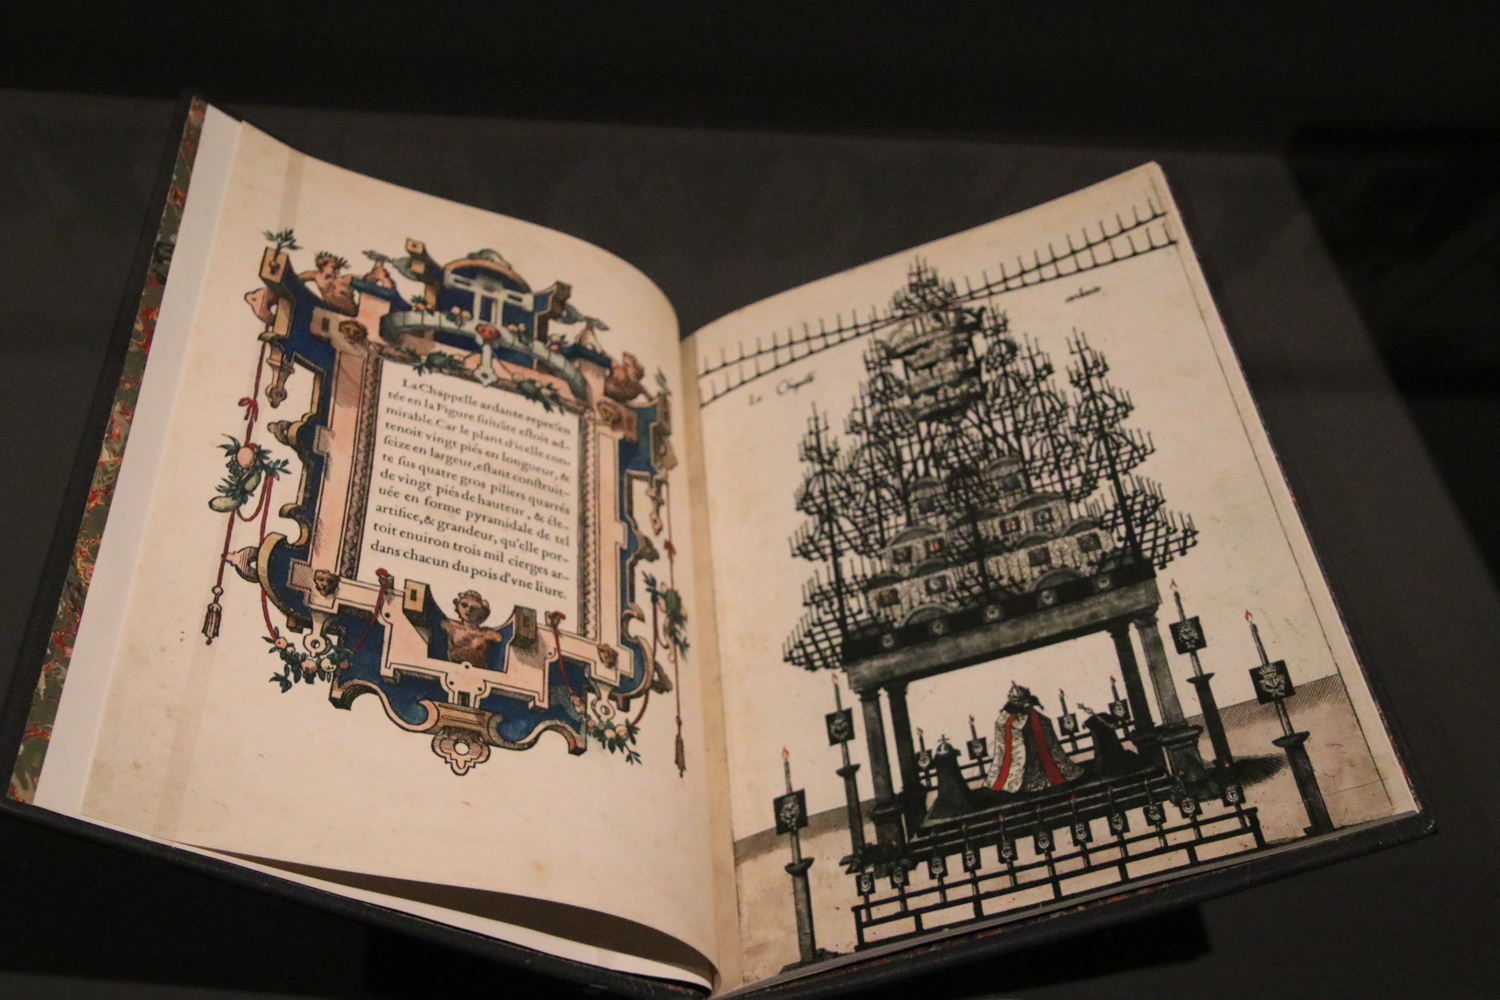 La Chappelle ardante represen
tée en la Figure ſuiuãte eſtoit ad-
mirable. Car le plant d'icelle con-
tenoit vingt piés en longueur, &
ſeize en largeur, eſtant conſtruit-
te ſus quatre gros piliers quarrés
de vingt piés de hauteur, & éle-
uée en forme pyramidale de tel
artifice, & grandeur, qu'elle por-
toit enuiron trois mil cierges ar-
dans chacun du pois d'vne liure.
La Chapelle ardante